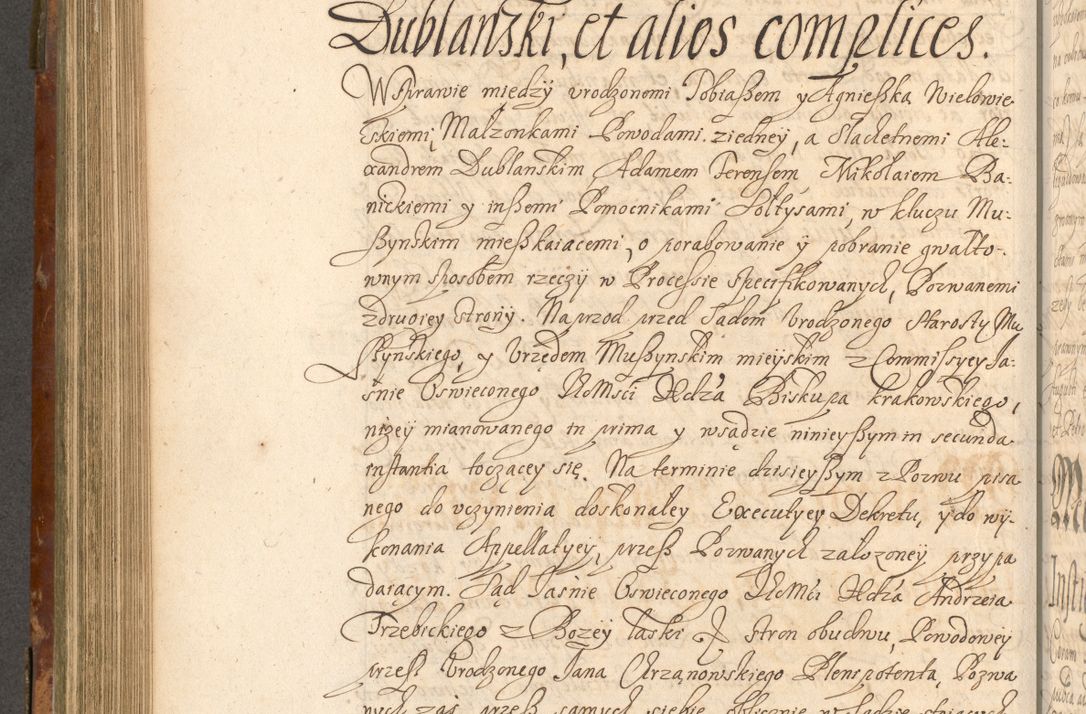 Dublanski, et alios complices.
W sprawie między vrodzonemi Tobiaßem y Agnießką Wielowie
skiemi, Małzonkami Powodami ziedney, a Slachetnemi Ale:
xandrem Dublanskim Adamem Ferensem Mikołaiem Ba:
nickiemi y inßemi Pomocnikami Sołtysami, w kluczu Mu:
ßynskim mießkaiacemi, o porabowanie y pobranie gwałto-
wnym sposobem rzeczy w Processie specifikowanych, Pozwanemi
zdrugiey strony. Naprzod przed Sadem Vrodzonego Starosty Mu
ßynskiego, y Vrzędem Mußynskim mieyskim z Commissyey Ja:
snie Oswieconego Xcia Biskupa krakowskiego,
nizey mianowanego in prima y wsądzie ninieyßym in secunda
instantia toczącey się. Na terminie dzisieyßym z Pozwu pisa
nego do vczynienia doskonałey Executyey Dekretu, y do wy-
konania Appellatyey, przeß Pozwanych załozoney przypa
daiącym. Sąd Jasnie Oswieconego Xcia Andrzeia
Trzebickiego z Bozey łaski stron obudwu, Powodowey
przeß Vrodzonego Jana Chrzanowskiego Plenipotenta, Pozwa
nych zas przeß samych siebie oblicznie w Sądzie stoiących